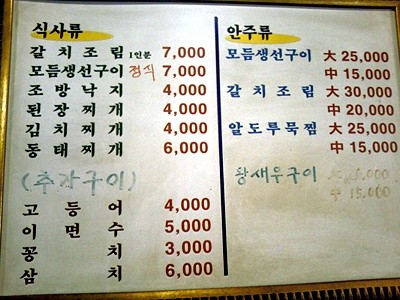 식사류
갈치조림 1인분 7,000
모듬생선구이 정식 7,000
조방낙지 4,000
된장찌개 4,000
김치찌개 4,000
동태찌개 6,000
(추가구이)
고등어 4,000
이면수 5,000
꽁치 3,000
삼치 6,000
안주류
모듬생선구이 大 25,000
中 15,000
갈치조림 大 30,000
中 20,000
알도루묵찜 大 25,000
中 15,000
왕새우구이
中 15,000